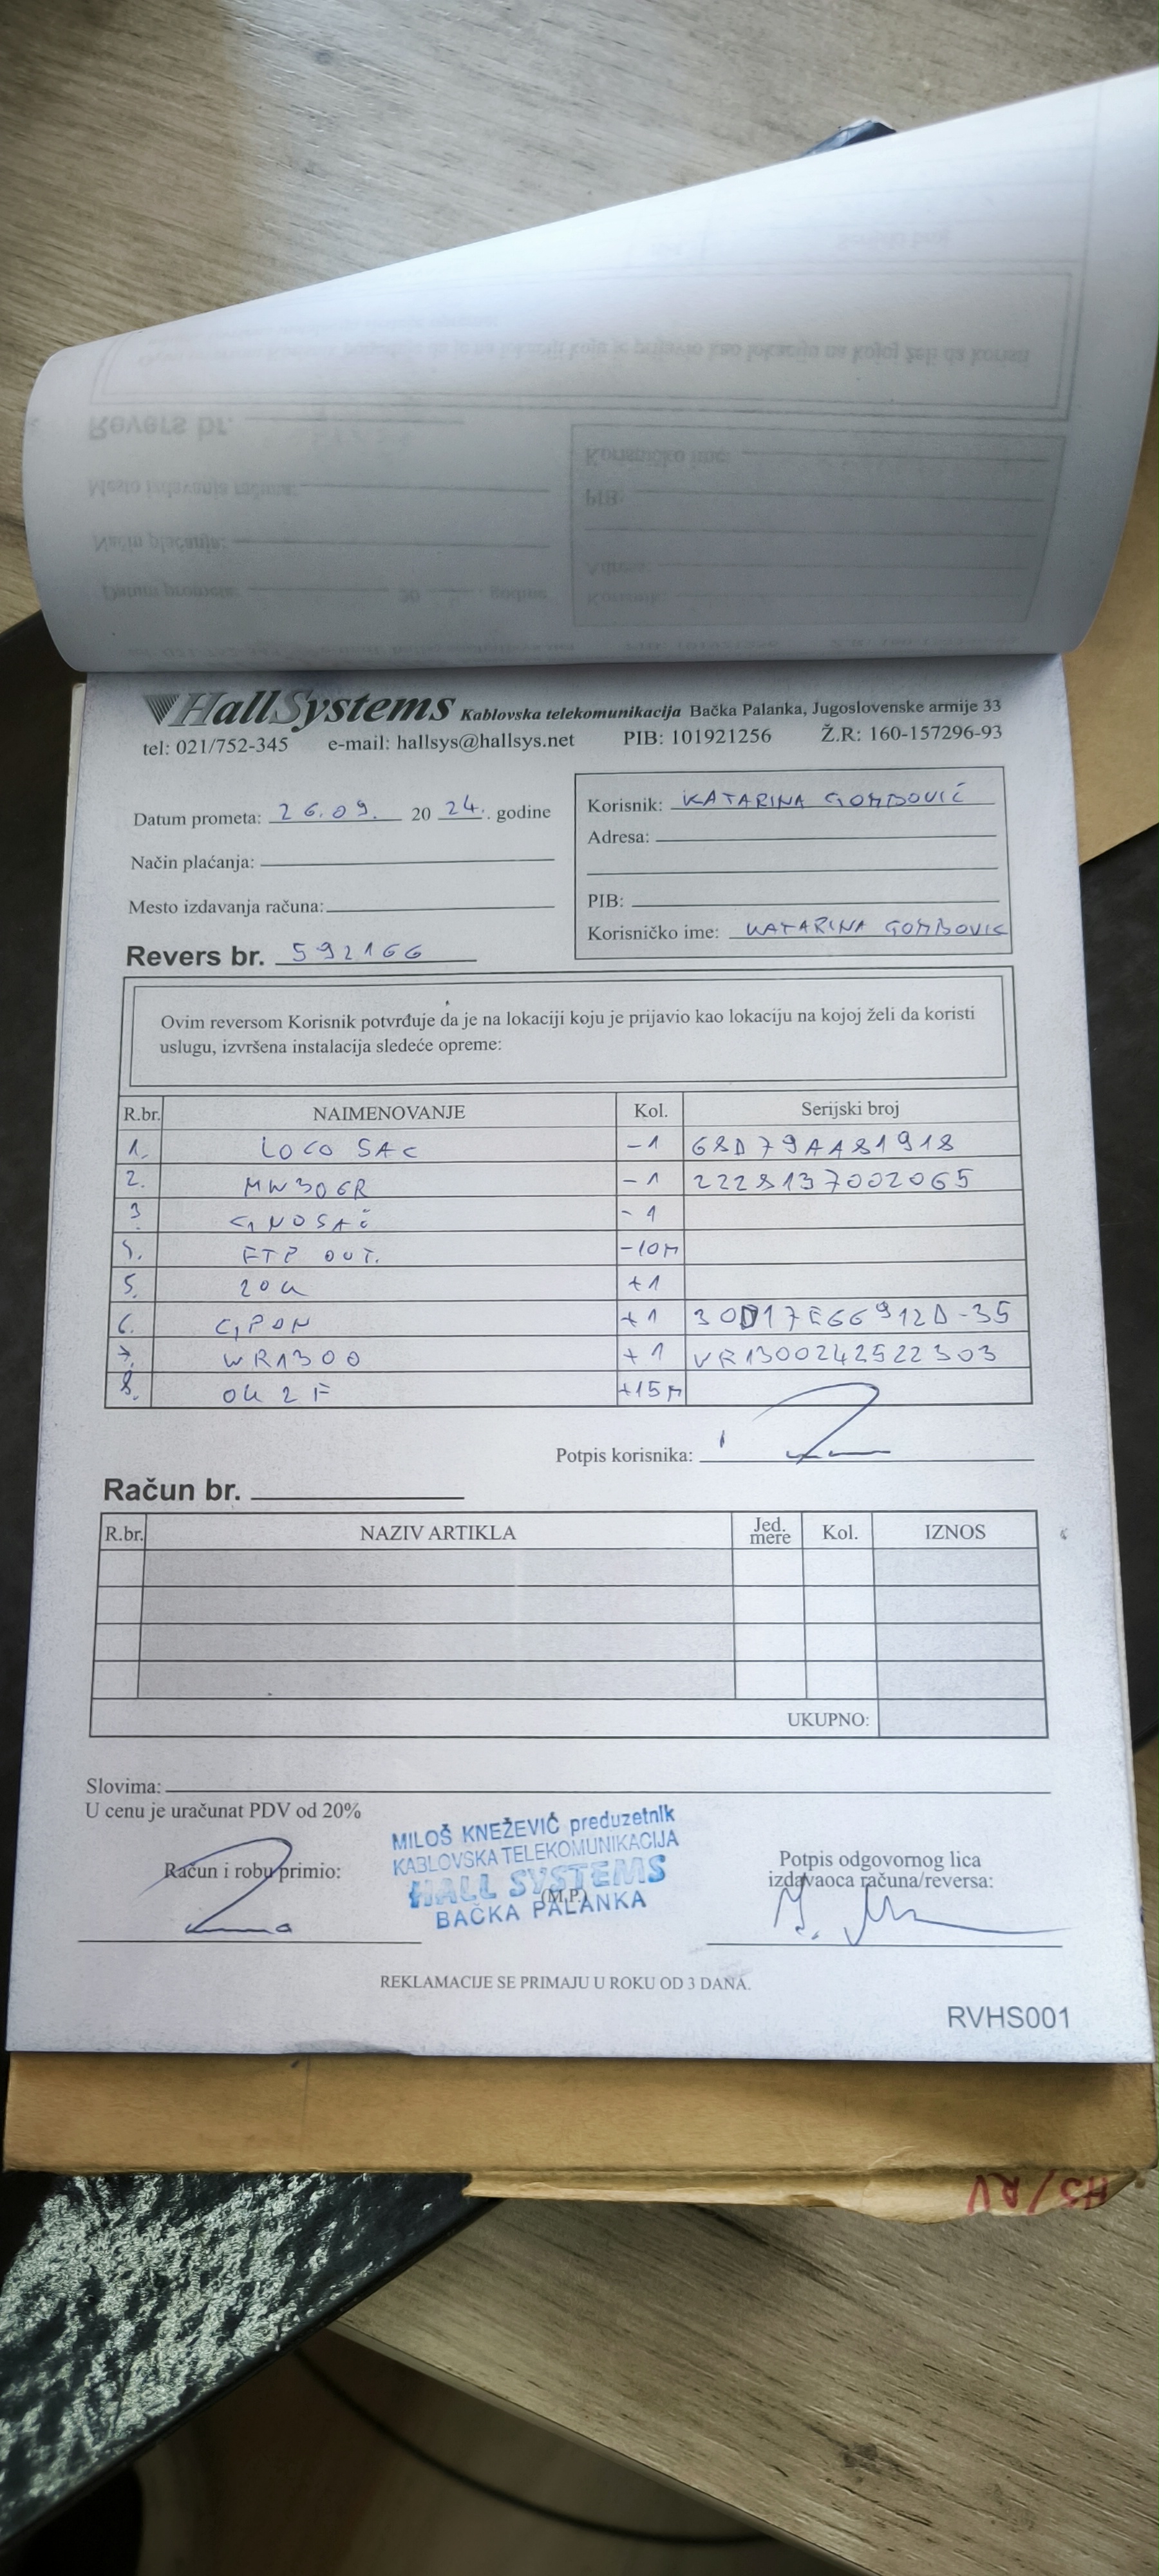 HallSystems Kablovska telekomunikacija Bačka Palanka, Jugoslovenske armije 33
tel: 021/752-345 e-mail: hallsys@hallsys.net PIB: 101921256 Ž.R: 160-157296-93
Datum prometa: 26.09. 20 24. godine
Način plaćanja:
Mesto izdavanja računa:
Revers br. 592166
Korisnik: KATARINA GOMBOVIĆ
Adresa:
PIB:
Korisničko ime: KATARINA GOMBOVIC
Ovim reversom Korisnik potvrđuje da je na lokaciji koju je prijavio kao lokaciju na kojoj želi da koristi
uslugu, izvršena instalacija sledeće opreme:
R.br. NAIMENOVANJE Kol. Serijski broj
1. LOCO 5AC -1 68D79AA81918
2. MW306R -1 2228137002065
3. -1
4. FTP OUT. -10m
5. +1
6. GPON +1 30D17E66912D-35
7. WR1300 +1 VR1300242522303
8. OK 2F +15m
Potpis korisnika:
Račun br.
R.br. NAZIV ARTIKLA Jed. mere Kol. IZNOS
UKUPNO:
Slovima:
U cenu je uračunat PDV od 20%
Račun i robu primio:
MILOŠ KNEŽEVIĆ preduzetnik
KABLOVSKA TELEKOMUNIKACIJA
HALL SYSTEMS
(M.P.)
BAČKA PALANKA
Potpis odgovornog lica
izdavaoca računa/reversa:
REKLAMACIJE SE PRIMAJU U ROKU OD 3 DANA.
RVHS001
HS/RV